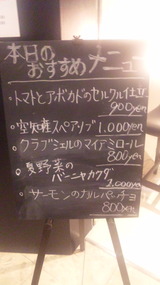 本日の
おすすめメニュー
・トマトとアボカドのセルクル仕立
900yen
・空知産スペアリブ 1.000yen
・クラブジェルのマイアミロール
800yen
・夏野菜の
バーニャカウダ
2.000yen
・サーモンのカルパッチョ
800yen